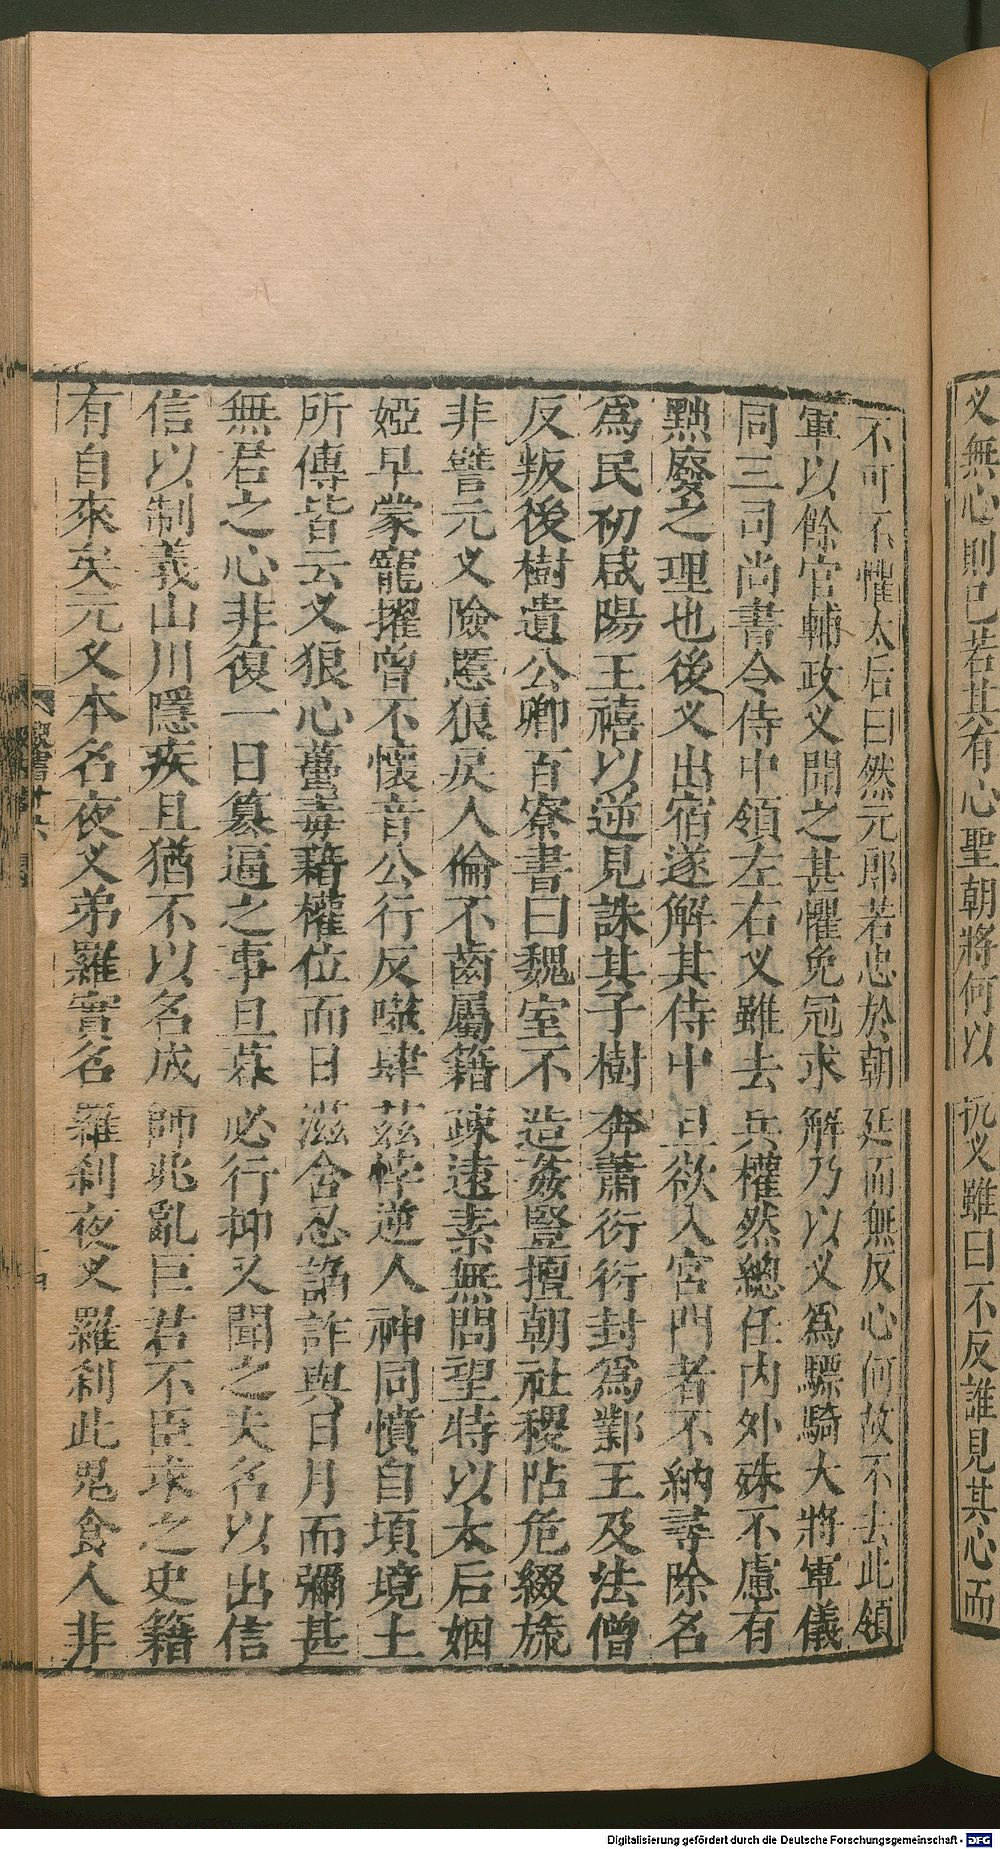 义無心則已若其有心聖朝將何以抗义雖曰不反誰見其心而
不可不懼太后曰然元郎若忠於朝廷而無反心何故不去此領
軍以餘官輔政义聞之甚懼免冠求解乃以义爲驃騎大將軍儀
同三司尚書令侍中領左右义雖去兵權然總任內外殊不慮有
黜廢之理也後义出宿遂解其侍中旦欲入宮門者不納尋除名
爲民初咸陽王禧以逆見誅其子樹奔蕭衍衍封爲鄴王及法僧
反叛後樹遺公卿百寮書曰魏室不造姦豎擅朝社稷阽危綴旒
非譬元义險慝狼戾人倫不齒屬籍疎遠素無問望特以太后姻
婭早蒙寵擢曾不懷音公行反噬肆茲悖逆人神同憤自頃境土
所傳皆云义狼心蠆毒藉權位而日滋含忍諂詐與日月而彌甚
無君之心非復一日篡逼之事旦暮必行抑又聞之夫名以出信
信以制義山川隱疾且猶不以名成師兆亂巨君不臣求之史籍
有自來矣元义本名夜义弟羅實名羅刹夜义羅刹此鬼食人非
魏書十六
Digitalisierung gefördert durch die Deutsche Forschungsgemeinschaft - DFG